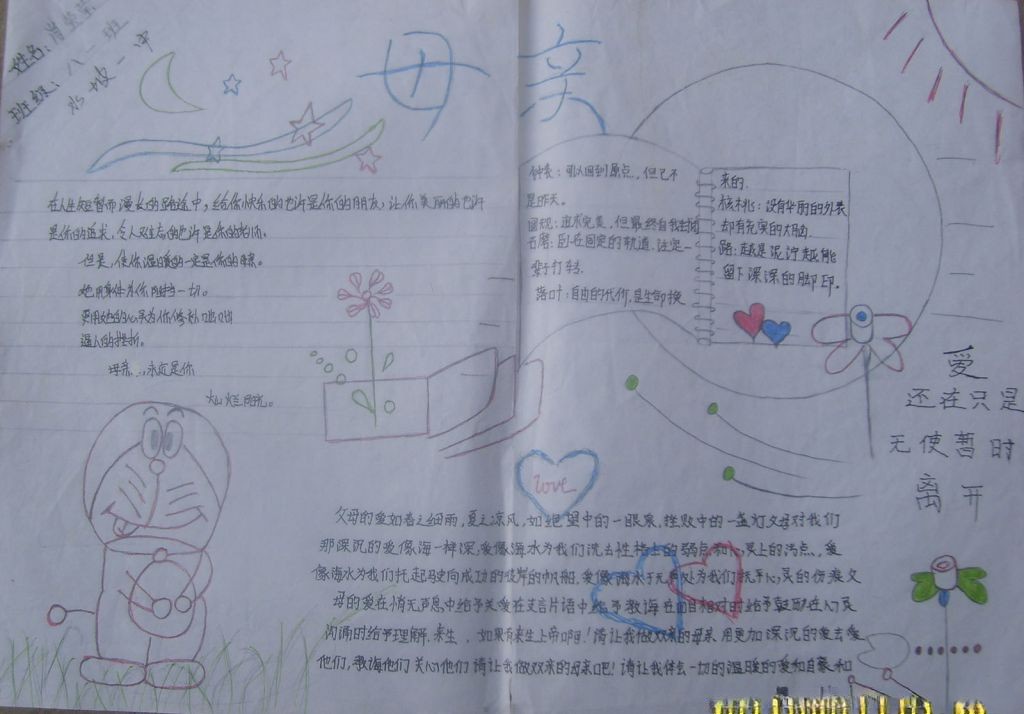 姓名：肖
班级：八一班
水坡一中
母亲
在人生短暂而漫长的路途中，给你快乐的也许是你的朋友，让你美丽的也许
是你的追求，令人难忘的也许是你的老师。
但是，使你温暖的一定是你的母亲。
她用身体为你阻挡一切。
更用她的心灵为你修补
逼人的挫折。
母亲…永远是你
灿烂阳光。
钟表：可以回到原点，但已不
是昨天。
圆规：追求完美，但最终自我
石磨：即在固定的轨道，注定一
辈子打转。
落叶：自由的代价，是生命换
来的。
核桃：没有华丽的外表
却有充实的大脑。
路：越是泥泞越能
留下深深的脚印。
爱
还在只是
无使暂时
离开
love
父母的爱如春之细雨，夏之凉风，如绝望中的一眼泉，挫败中的一盏灯父母对我们
那深沉的爱像海一样深，爱像海水为我们洗去性格上的弱点和心灵上的污点，爱
像海水为我们托起驶向成功的彼岸的帆船，爱像海水于无声处为我们抚平心灵的伤痕父
母的爱在悄无声息中给予关爱在只言片语中给予教诲在面目相对时给予鼓励在心灵
沟通时给予理解。来生，如果有来生上帝啊！请让我做双亲的母亲用更加深沉的爱去爱
他们，教诲他们关心他们请让我做双亲的母亲吧！请让我伴去一切的温暖的爱和自豪和